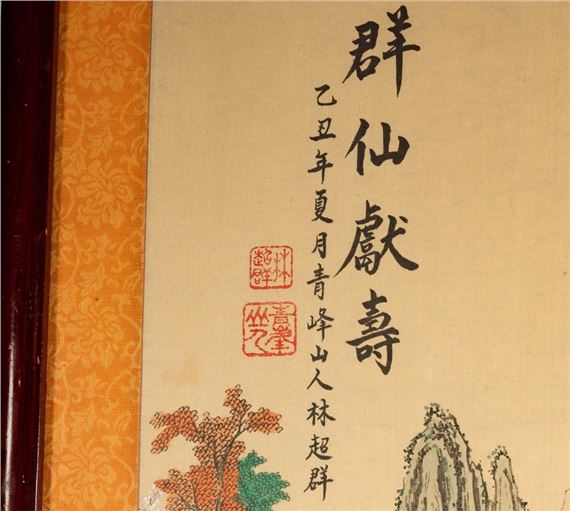 群仙獻壽
乙丑年夏月青峰山人林超群
林超群
青峯山人